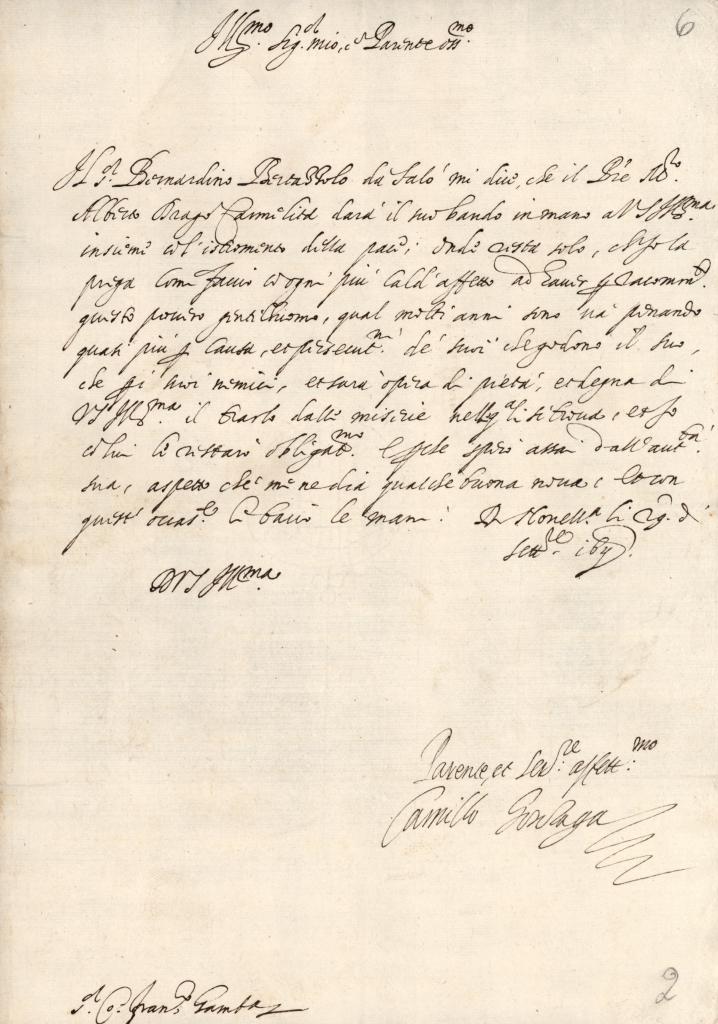 6
Ill.mo Sig.r mio, et Parente oss.mo
Il S.r Bernardino Bertazzolo da Salò mi dice, che il P're
Alberto Drago Carmelita darà il suo bando in mano a V S Ill.ma
insieme col'istromento della pace; onde resta solo, ch'io la
prega come faccio con ogni più cald'affetto ad haver
questo povero gentilhuomo, qual molti anni sono và penando
quasi più p causa, et persecut.ni de' suoi che godono il suo,
che p i suoi nemici, et sarà opera di pietà, et degna di
V S Ill.ma il trarlo dalle miserie nelle q.ali si trova, et io
con lui le restarò obligat.mo E perche spero assai dall'aut.tà
sua, aspetto che me ne dia qualche buona nova; et con
quest' occas.e le bacio le mani. Di Novell.a li 29. di
Sett.re
D V S Ill.ma
Parente, et Ser.re affett.mo
Camillo Gonzaga
S.r Co. Fran.co Gambara
2